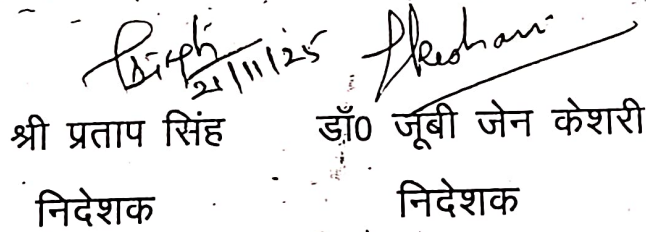 21/11/25
श्री प्रताप सिंह डॉ0 जूबी जेन केशरी
निदेशक निदेशक